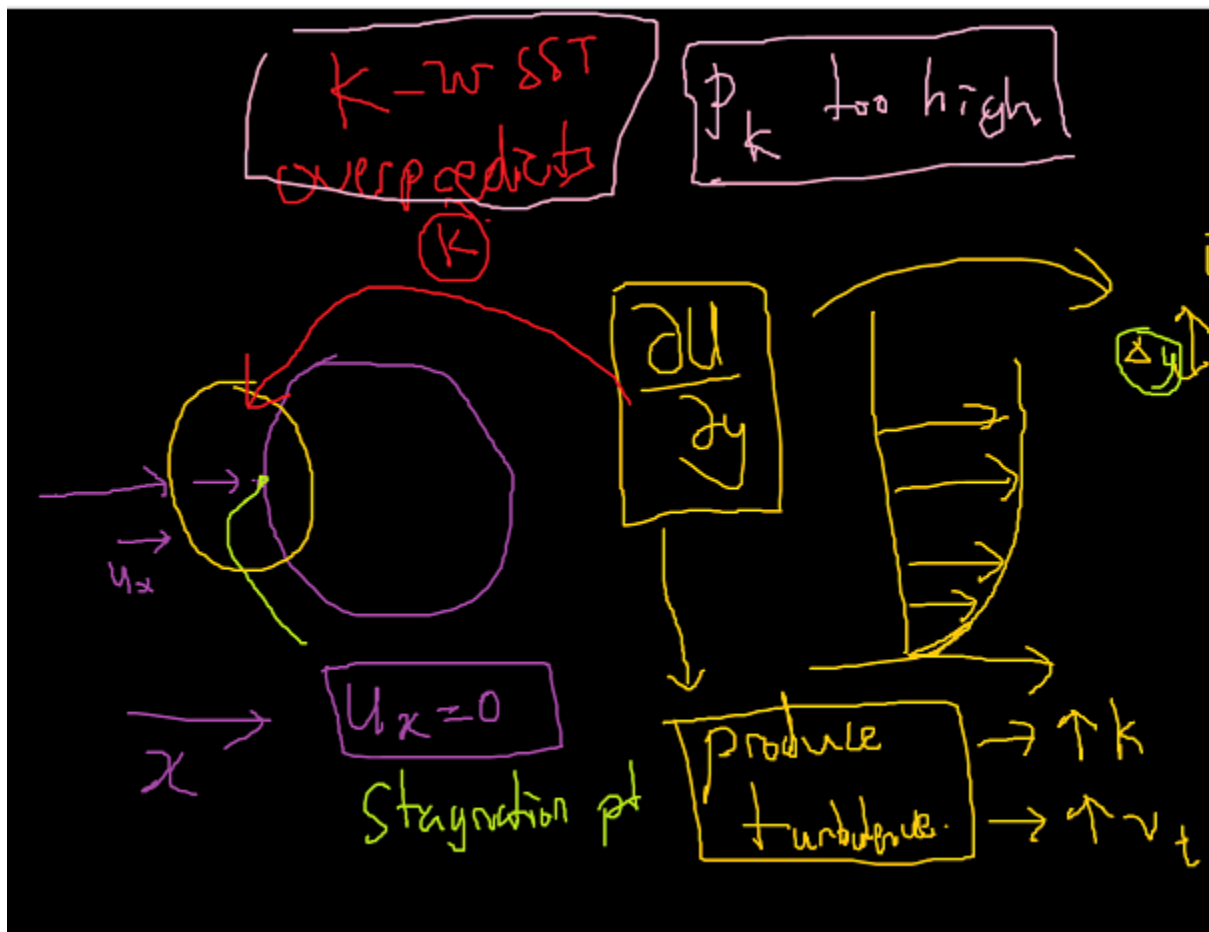 K-w SST
overpredicts
K
P_k too high
∂U
∂y
Δy
u_x
x
U_x=0
Stagnation pt
produce
turbulence.
→ ↑ k
→ ↑ ν_t